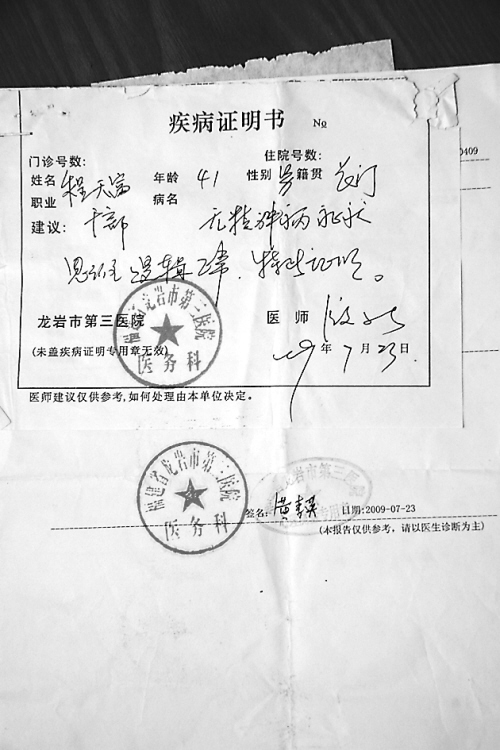 疾病证明书 No
0409
门诊号数: 住院号数:
姓名 程天富 年龄 41 性别 男 籍贯
职业 干部 病名 无精神病症状
建议: 思维逻辑正常,特此证明。
龙岩市第三医院 医师
(未盖疾病证明专用章无效) 09年7月23日.
福建省龙岩市第三医院
医务科
医师建议仅供参考,如何处理由本单位决定。
福建省龙岩市第三医院
医务科
龙岩市第三医院
签名: 日期:2009-07-23
(本报告仅供参考，请以医生诊断为主)